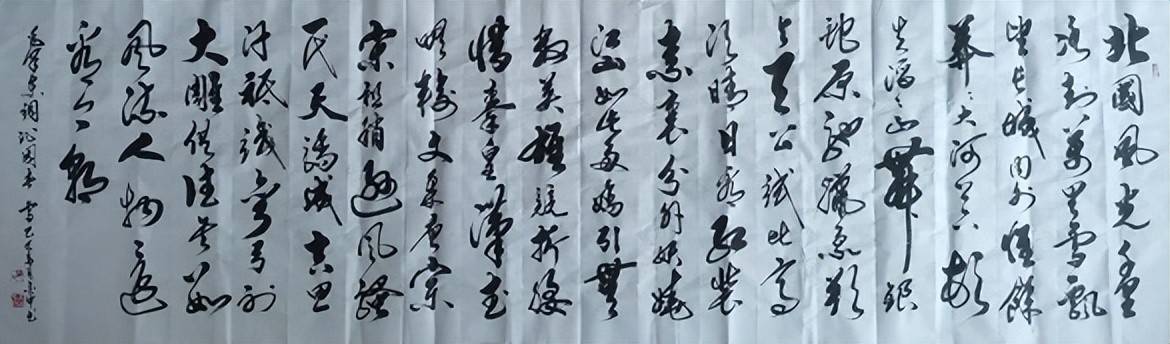 北國風光千里
冰封萬里雪飄
望長城内外惟餘
莽〻大河上下頓
失滔〻山舞銀
蛇原馳蠟象欲
與天公試比高
須晴日看紅裝
素裹分外妖嬈
江山如此多嬌引無
數英雄競折腰
惜秦皇漢武
略輸文采唐宗
宋祖稍遜風騷
一代天驕成吉思
汗祇識彎弓射
大雕俱往矣數
風流人物還
看今朝
毛澤東詞沁園春雪乙巳年